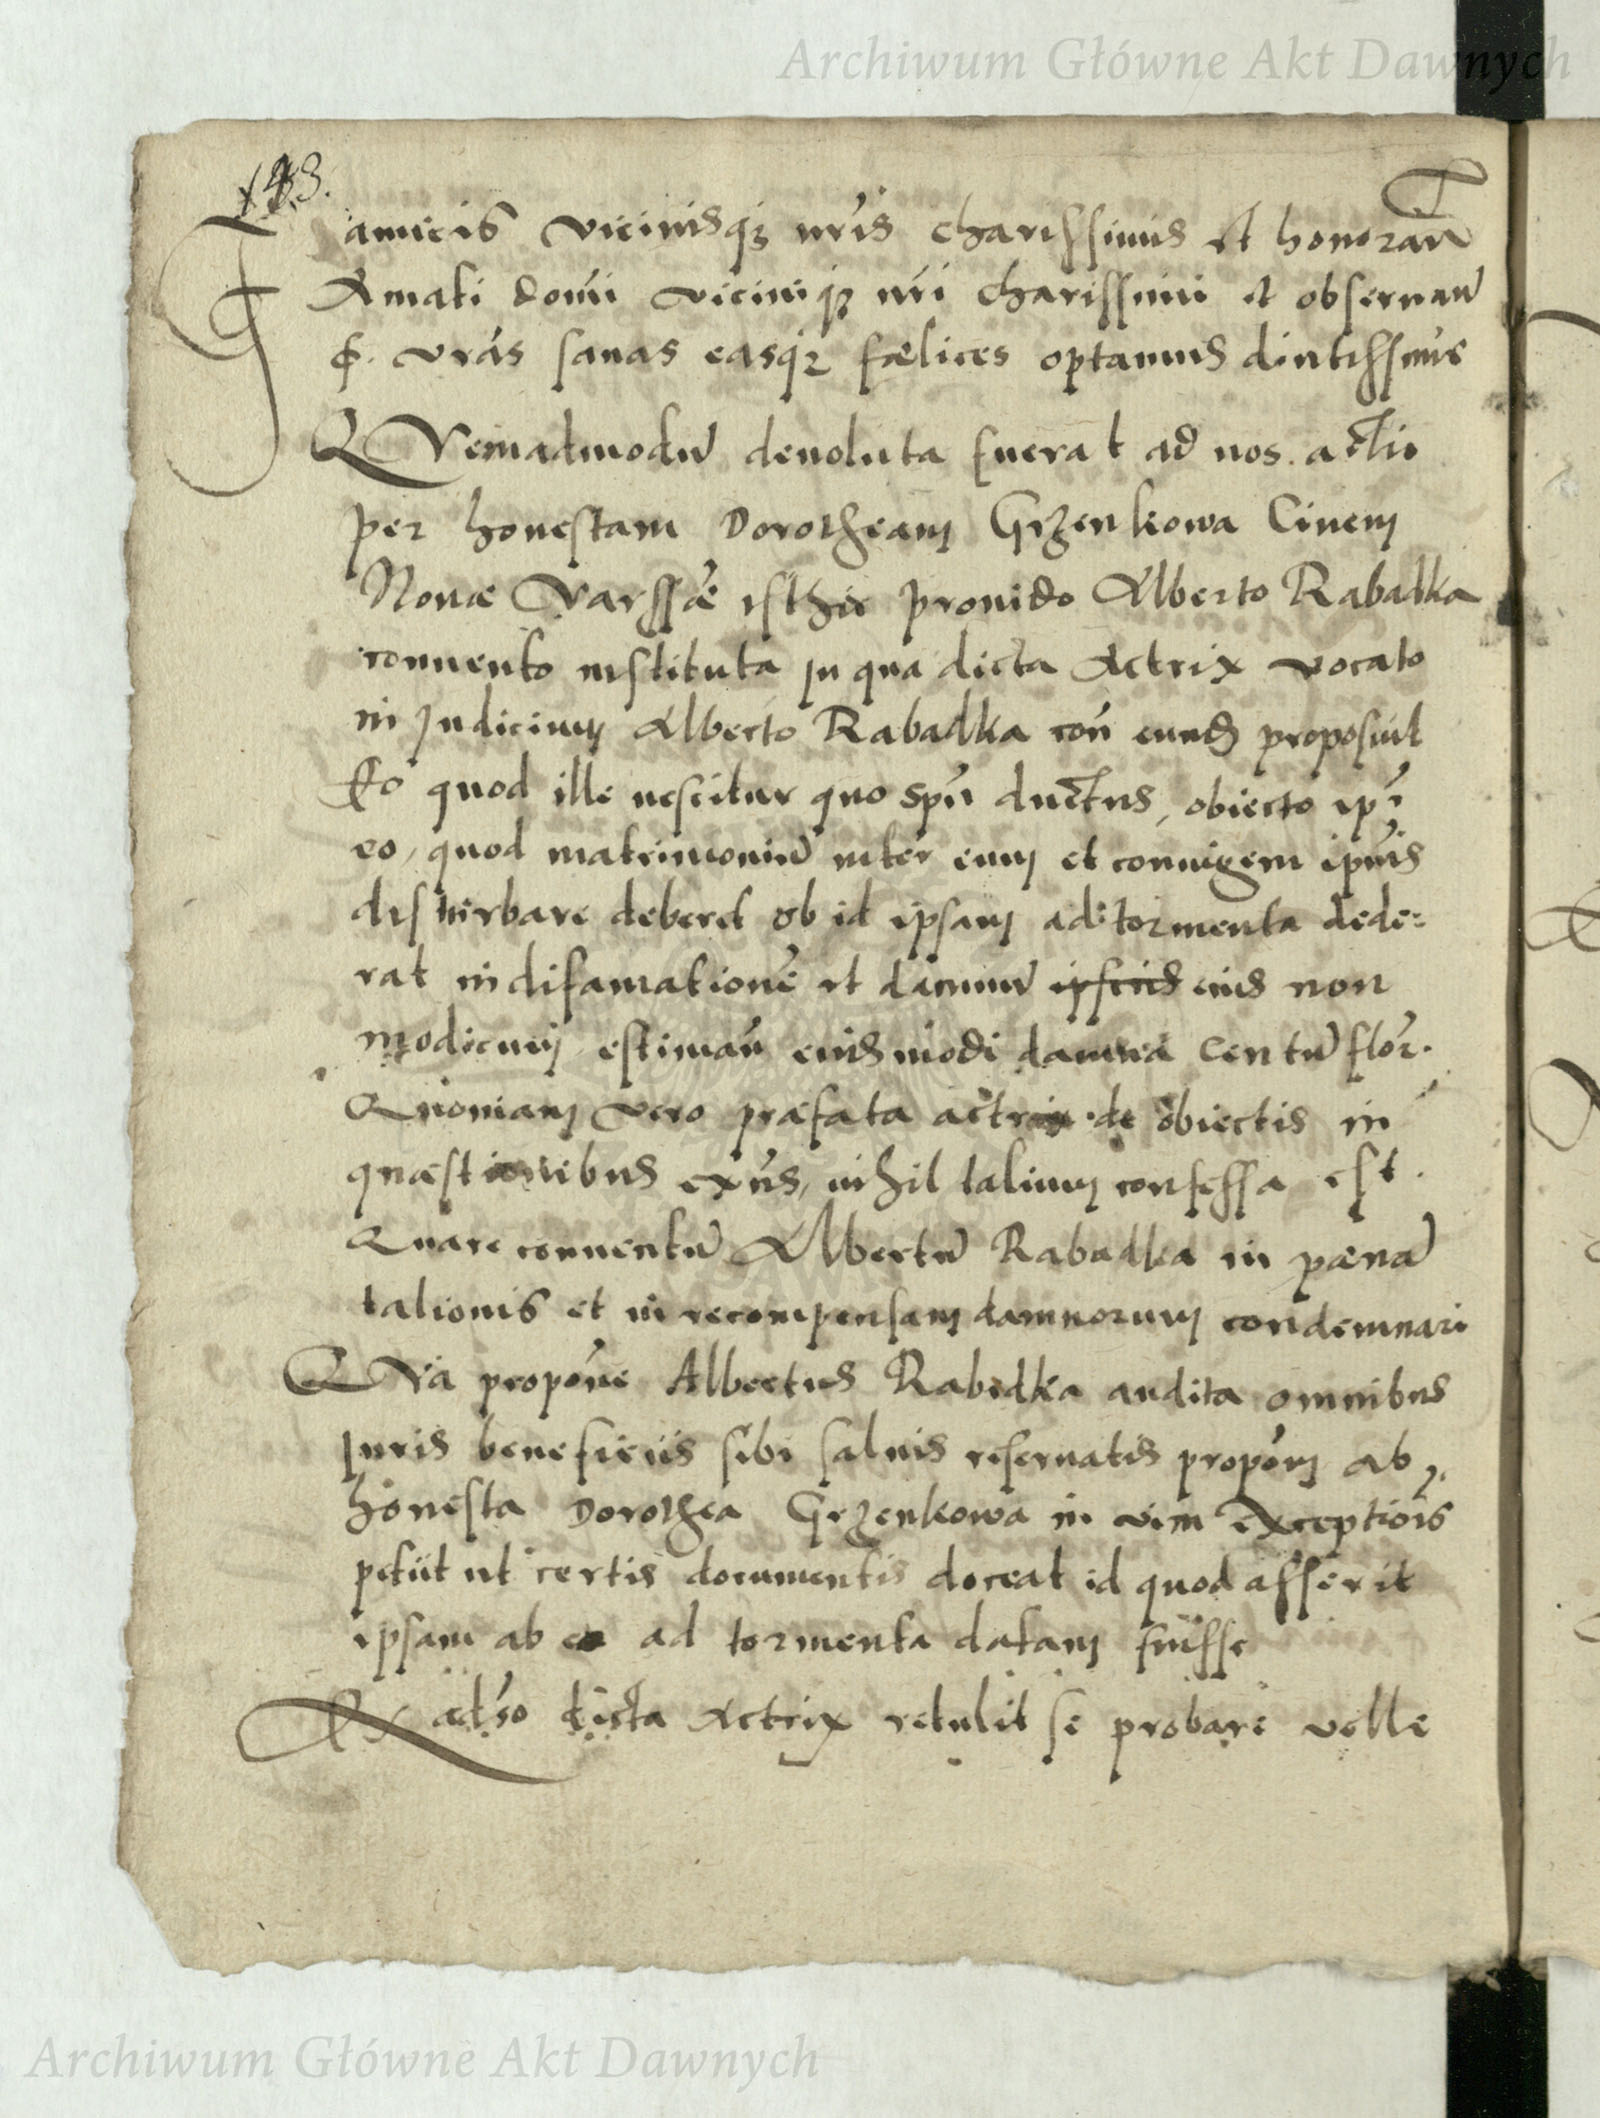 Archiwum Główne Akt Dawnych
amicis vicinisq3 nris charissimis et honoran
Amati domi viciniq3 nri charissimi et obseruan
vras sanas easq3 fælices optamus diutissime
QVemadmodu deuoluta fuerat ad nos actio
per honestam Dorotheam Grzenkowa Ciuem
Nouæ Varssæ isthic prouido Alberto Rabadka
conuento instituta in qua dicta Actrix vocato
in Judicium Alberto Rabadka con eund proposuit
Eo quod ille nescitur quo spu ductus, obiecto ipi
eo, quod matrimoniu inter eum et coniugem ipius
disturbare deberet ob id ipsam ad tormenta dede=
rat in difamatione et damnu ipsius eius non
modicum estiman eiusmodi damna Centu flor.
Quoniam vero præfata actrix de obiectis in
quæstionibus exns, nihil talium confessa est.
Quare conuentu Albertu Rabadka in pæna
talionis et in recompensam damnorum condemnari
QVa propone Albertus Rabadka audita omnibus
iuris beneficiis sibi saluis reseruatis propom ab
honesta Dorothea Grzenkowa in vim exceptiois
petiit ut certis documentis doceat id quod asserit
ipsam ab eo ad tormenta datam fuisse
Ex aduso dicta Actrix retulit se probare velle
Archiwum Główne Akt Dawnych